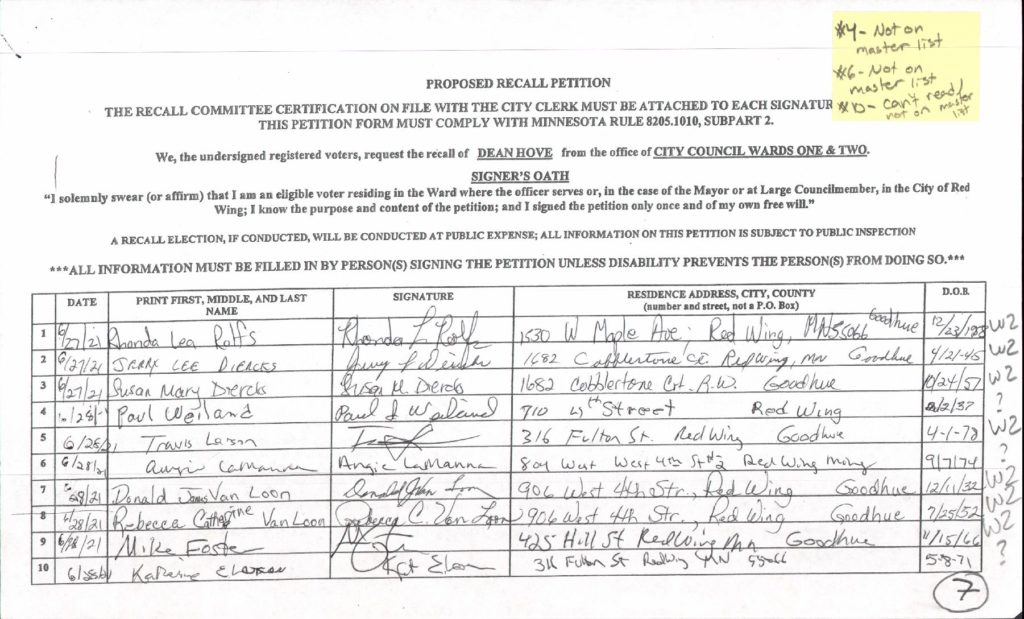 #4 - Not on
master list
#6 - Not on
master list
#10 - can't read/
not on master
list
PROPOSED RECALL PETITION
THE RECALL COMMITTEE CERTIFICATION ON FILE WITH THE CITY CLERK MUST BE ATTACHED TO EACH SIGNATUR
THIS PETITION FORM MUST COMPLY WITH MINNESOTA RULE 8205.1010, SUBPART 2.
We, the undersigned registered voters, request the recall of DEAN HOVE from the office of CITY COUNCIL WARDS ONE & TWO.
SIGNER'S OATH
"I solemnly swear (or affirm) that I am an eligible voter residing in the Ward where the officer serves or, in the case of the Mayor or at Large Councilmember, in the City of Red
Wing; I know the purpose and content of the petition; and I signed the petition only once and of my own free will."
A RECALL ELECTION, IF CONDUCTED, WILL BE CONDUCTED AT PUBLIC EXPENSE; ALL INFORMATION ON THIS PETITION IS SUBJECT TO PUBLIC INSPECTION
***ALL INFORMATION MUST BE FILLED IN BY PERSON(S) SIGNING THE PETITION UNLESS DISABILITY PREVENTS THE PERSON(S) FROM DOING SO.***
DATE PRINT FIRST, MIDDLE, AND LAST NAME SIGNATURE RESIDENCE ADDRESS, CITY, COUNTY (number and street, not a P.O. Box) D.O.B.
1 6/27/21 Rhonda Lea Rolfs Rhonda L Rolfs 1530 W Maple Ave; Red Wing, MN 55066 Goodhue 12/23/ W2
2 6/27/21 JERRY LEE DIERCKS 1682 Cobblertone Ct. Red Wing, MN Goodhue 4/21-45 W2
3 6/27/21 Susan Mary Diercks Susan M. Diercks 1682 Cobblertone Crt. R.W. Goodhue 10/24/57 W2
4 6/28/ Paul Weiland Paul J Weiland 710 Street Red Wing 2/37 ?
5 6/28/21 Travis Larson 316 Fulton St. Red Wing Goodhue 4-1-78 W2
6 6/28/21 Angie LaManna Angie LaManna 804 West West 4th St #2 Red Wing 9/7/74 ?
7 6/28/21 Donald James Van Loon Donald J Van Loon 906 West 4th Str., Red Wing Goodhue 12/11/32 W2
8 6/28/21 Rebecca Catherine Van Loon Rebecca C. Van Loon 906 West 4th Str., Red Wing Goodhue 7/25/52 W2
9 6/28/21 Mike Foster 425 Hill St Red Wing Mn Goodhue 11/15/66 W2
10 6/28/21 Katherine 316 Fulton St Red Wing MN 55066 5-8-71 ?
7